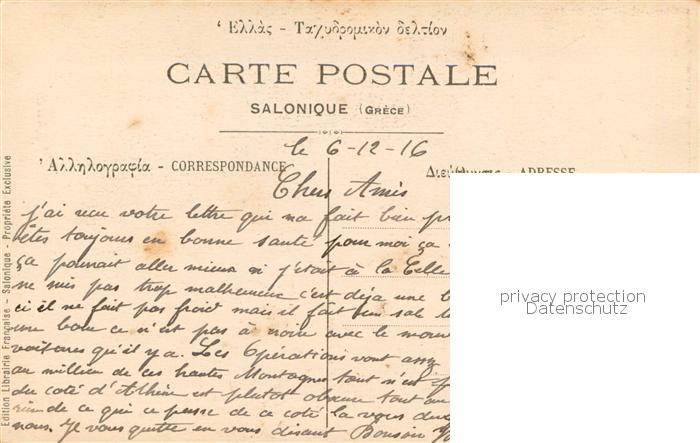 ‘Ελλὰς - Ταχυδρομικὸν δελτίον
CARTE POSTALE
SALONIQUE (GRÈCE)
le 6-12-16
‘Αλληλογραφία - CORRESPONDANCE
Διεύθυνσις - ADRESSE
Chers Amis
j'ai recu votre lettre qui ma fait bien
êtes toujours en bonne santé pour moi ça
ça pourrait aller mieux si j'étais à la
ne suis pas trop malheureux c'est déja une
ci il ne fait pas froid mais il fait un sale
une boue ce n'est pas à voir avec le
voitures qu'il y a. Les Opérations vont
au millieu de ces hautes Montagnes tout n'est
du coté d'Athène est plutôt obscure tout
rien de ce qui ce passe de ce coté la vous
nous. Je vous quitte en vous disant Bonsoir
Edition Librairie Française - Salonique - Propriété Exclusive
privacy protection
Datenschutz